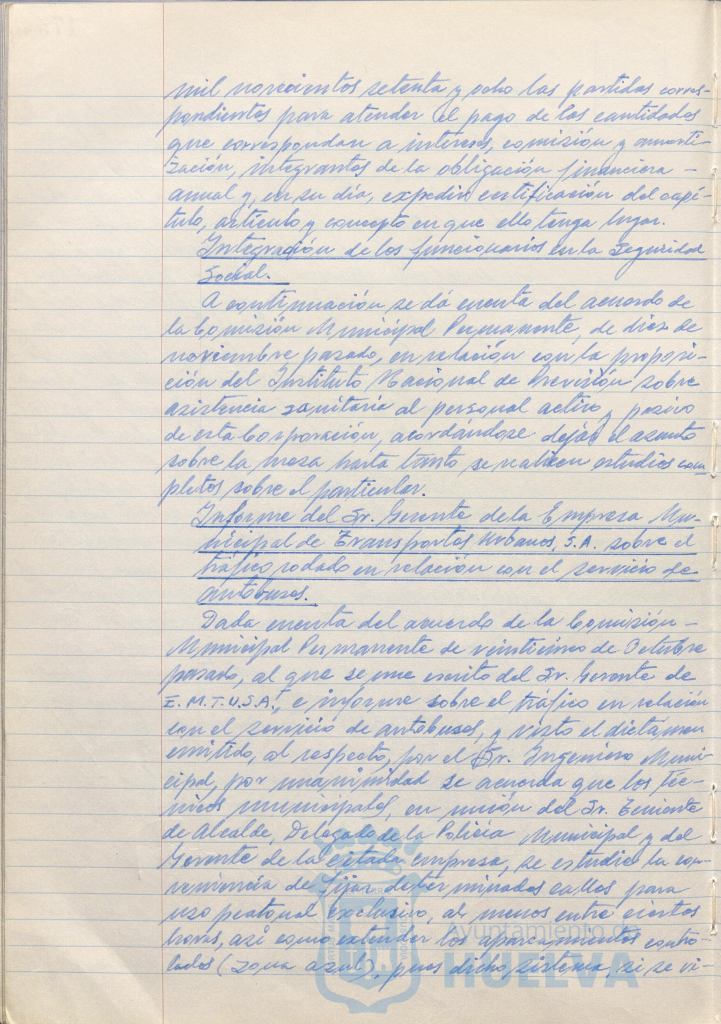 mil novecientos setenta y ocho las partidas corres-
pondientes para atender el pago de las cantidades
que correspondan a intereses, comisión y amorti-
zación, integrantes de la obligación financiera -
anual y, en su día, expedir certificación del capí-
tulo, artículo y concepto en que ello tenga lugar.
Integración de los funcionarios en la Seguridad
Social.-
A continuación se dá cuenta del acuerdo de
la Comisión Municipal Permanente, de diez de
noviembre pasado, en relación con la proposi-
ción del Instituto Nacional de Previsión sobre
asistencia sanitaria al personal activo y pasivo
de esta Corporación, acordándose dejar el asunto
sobre la mesa hasta tanto se realicen estudios com-
pletos sobre el particular.
Informe del Sr. Gerente de la Empresa Mu-
nicipal de Transportes Urbanos, S.A. sobre el
tráfico rodado en relación con el servicio de
autobuses.-
Dada cuenta del acuerdo de la Comisión -
Municipal Permanente de veinticinco de Octubre
pasado, al que se une escrito del Sr. Gerente de
E.M.T.U.S.A., e informe sobre el tráfico en relación
con el servicio de autobuses, y visto el dictámen
emitido, al respecto, por el Sr. Ingeniero Muni-
cipal, por unanimidad se acuerda que los téc-
nicos municipales, en unión del Sr. Teniente
de Alcalde, Delegado de la Policía Municipal y del
Gerente de la citada empresa, se estudie la con-
veniencia de fijar determinadas calles para
uso peatonal exclusivo, al menos entre ciertas
horas, así como extender los aparcamientos contro-
lados (zona azul), pues dicho sistema, si se vi-
Ayuntamiento de
HUELVA